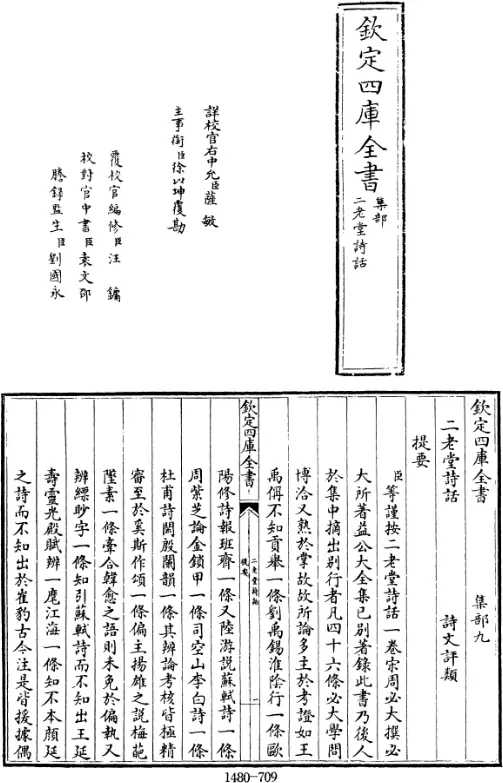 欽定四庫全書
集部
二老堂詩話
詳校官右中允臣薩敏
主事銜臣徐以坤覆勘
覆校官編修臣汪鏞
校對官中書臣袁文邵
謄録監生臣劉國永
欽定四庫全書
集部九
二老堂詩話
詩文評類
提要
臣等謹按二老堂詩話一卷宋周必大撰必
大所著益公大全集已别著錄此書乃後人
於集中摘出别行者凡四十六條必大學問
博洽又熟於掌故故所論多主於考證如王
禹偁不知貢舉一條劉禹錫淮陰行一條歐
欽定四庫全書
二老堂詩話
提要
一
陽修詩報班齋一條又陸游説蘇軾詩一條
周紫芝論金鎖甲一條司空山李白詩一條
杜甫詩閑殷闌韻一條其辨論考核皆極精
審至於奚斯作頌一條偏主揚雄之説梅葩
墜素一條牽合韓愈之語則未免於偏執又
辨縹眇字一條知引蘇軾詩而不知出王延
壽靈光殿賦辨一麾江海一條知不本顔延
之詩而不知出於崔豹古今注是皆援據偶
1480-709